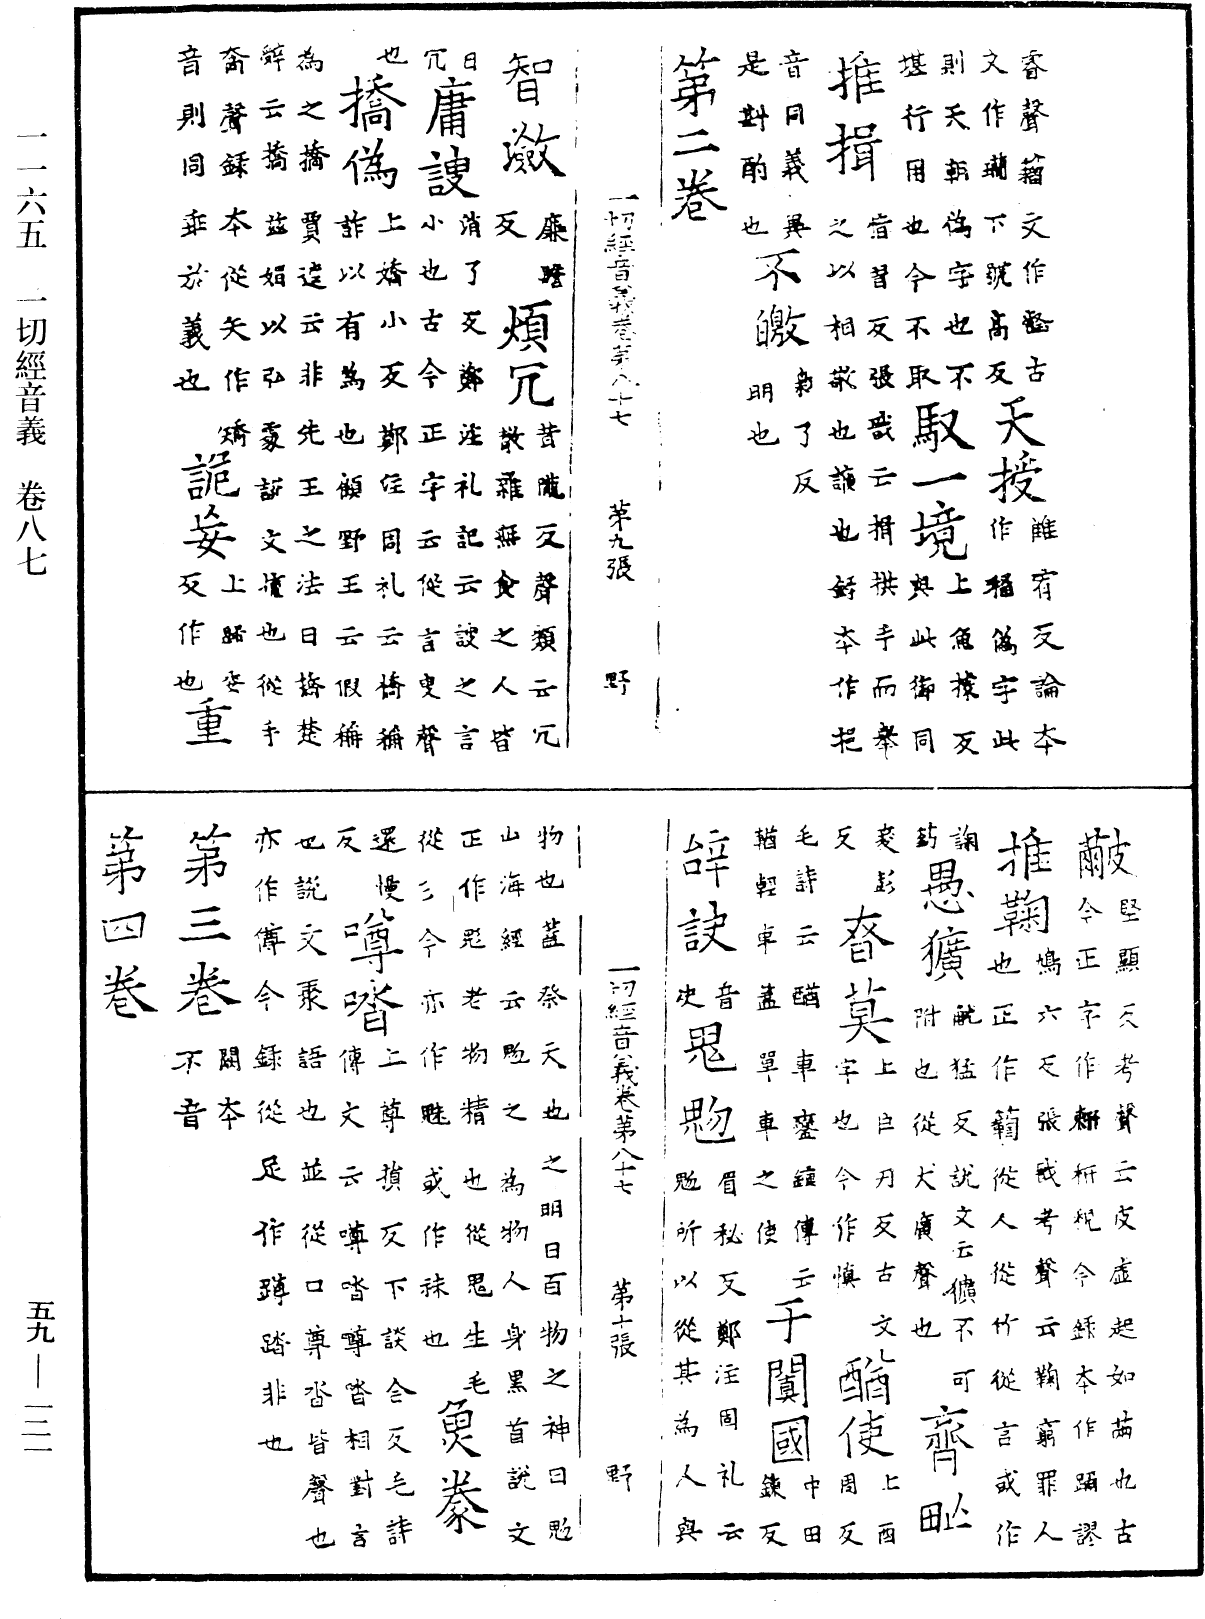 一一六五 一切經音義 卷八七
睿聲籀文作叡古
文作壡下號高反
天授
雖宥反論本
作稐偽字此
則天朝偽字也不
堪行用也今不取
馭一境
上魚據反
與此御同
推揖
音習反張戩云揖拱手而舉
之以相敬也讓也錄本作挹
音同義異
是斟酌也
不皦
彫了反
明也
第二卷
一切經音義卷第八十七 第九張 野
智瀲
廉瞻
反
煩冗
茸隴反聲類云冗
散雜無食之人皆
曰冗
庸謏
消了反鄭注礼記云謏之言
小也古今正字云從言叟聲
也
撟偽
上嬌小反鄭注周礼云撟稱
詐以有為也顧野王云假稱
為之撟賈逵云非先王之法曰撟楚
辭云撟茲媚以私處說文擅也從手
喬聲錄本從矢作矯
音則同乖於義也
詭妄
上歸委
反作也
重
𤿭
堅顯反考聲云皮虛起如繭也古
今正字作𧞫枅稅今錄本作踊謬
推鞠
鳩六反張戩考聲云鞠窮罪人
也正作𥷚從人從竹從言或作
諊
愚獷
觥猛反說文云獷不可
附也從犬廣聲也
齊毗
昚莫
上臣刃反古文
字也今作慎
酋使
上酉
周反
毛詩云酋車鸞鑣傳云
輶輕車蓋單車之使
于闐國
中田
鍊反
辝訣
音
決
鬼魅
眉秘反鄭注周礼云
魅所以從其為人與
一切經音義卷第八十七 第十張 野
物也蓋祭天也之明日百物之神曰魅
山海經云魅之為物人身黑首說文
正作鬽老物精也從鬼生毛
從彡今亦作魅或作袜也
魚豢
還慢
反
噂嗒
上尊損反下談合反毛詩
傳文云噂嗒噂嗒相對言
也說文聚語也並從口尊沓皆聲也
亦作僔今錄從足作蹲踏非也
第三卷
闕本
不音
第四卷
五九—一二一